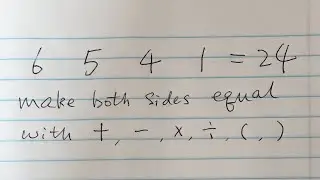 6 5 4 1 = 24
make both sides equal
with +, -, ×, ÷, (, )